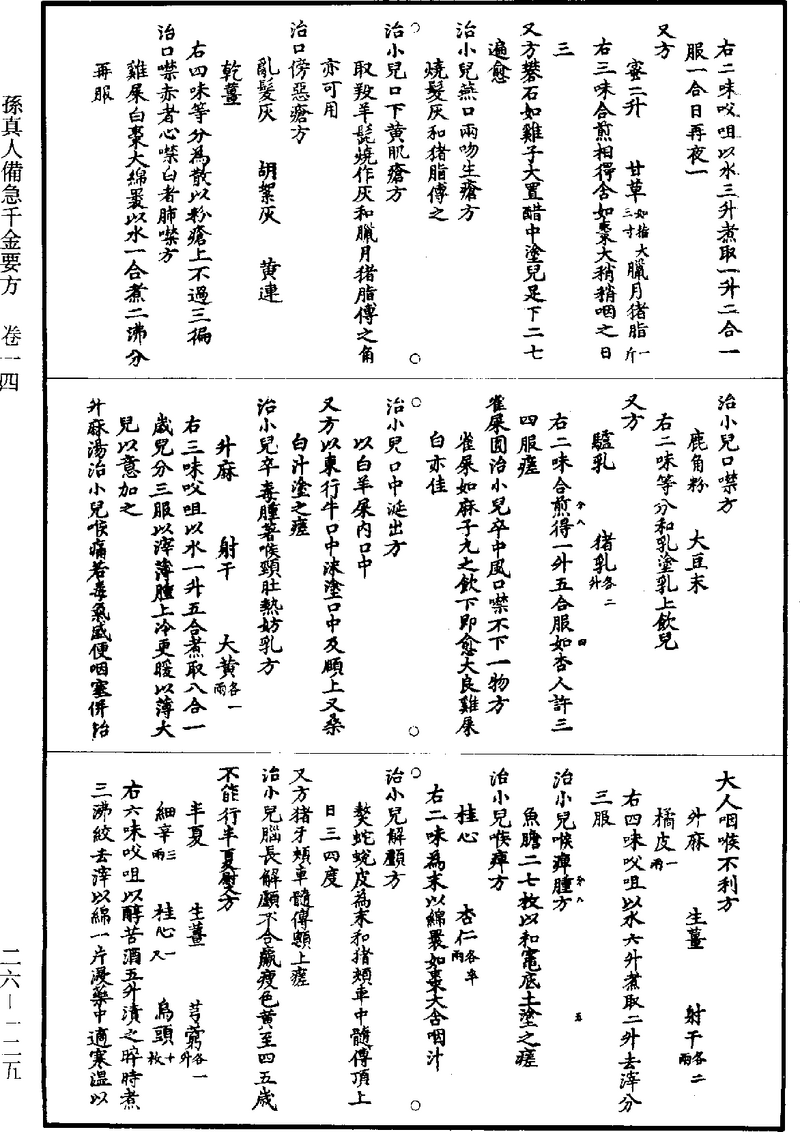 孫真人備急千金要方　卷一四
右二味㕮咀以水三升煮取一升二合一
服一合日再夜一
又方
蜜二升　甘草如指大三寸　臘月猪脂一斤
右三味合煎相得含如棗大稍稍咽之日
三
又方礬石如雞子大置醋中塗兒足下二七
遍愈
治小兒燕口兩吻生瘡方
燒髮灰和猪脂傅之
治小兒口下黄肌瘡方
取羖羊髭燒作灰和臘月猪脂傅之角
亦可用
治口傍惡瘡方
亂髮灰　胡絮灰　黄連
乾薑
右四味等分為散以粉瘡上不過三徧
治口噤赤者心噤白者肺噤方
雞屎白棗大綿裹以水一合煮二沸分
再服
治小兒口噤方
鹿角粉　大豆末
右二味等分和乳塗乳上飲兒
又方
驢乳　猪乳各二升
右二味合煎得一升五合服如杏人許三
四服瘥
雀屎圓治小兒卒中風口噤不下一物方
雀屎如麻子丸之飲下即愈大良雞屎
白亦佳
治小兒口中涎出方
以白羊屎内口中
又方以東行牛口中沫塗口中及頤上又桑
白汁塗之瘥
治小兒卒毒腫著喉頸壯熱妨乳方
升麻　射干　大黄各一兩
右三味㕮咀以水一升五合煮取八合一
歲兒分三服以滓薄腫上冷更暖以薄大
兒以意加之
升麻湯治小兒喉痛若毒氣盛便咽塞併治
大人咽喉不利方
升麻　生薑　射干各二兩
橘皮一兩
右四味㕮咀以水六升煮取二升去滓分
三服
治小兒喉痺腫方
魚膽二七枚以和竈底土塗之瘥
治小兒喉痺方
桂心　杏仁各半兩
右二味為末以綿裹如棗大含咽汁
治小兒解顱方
熬蛇蛻皮為末和猪頰車中髓傅頂上
日三四度
又方猪牙頰車髓傅顖上瘥
治小兒腦長解顱不合羸瘦色黄至四五歲
不能行半夏熨方
半夏　生薑　芎藭各一升
細辛三兩　桂心一尺　烏頭十枚
右六味㕮咀以醇苦酒五升漬之晬時煮
三沸絞去滓以綿一片浸藥中適寒温以
二六—一二五